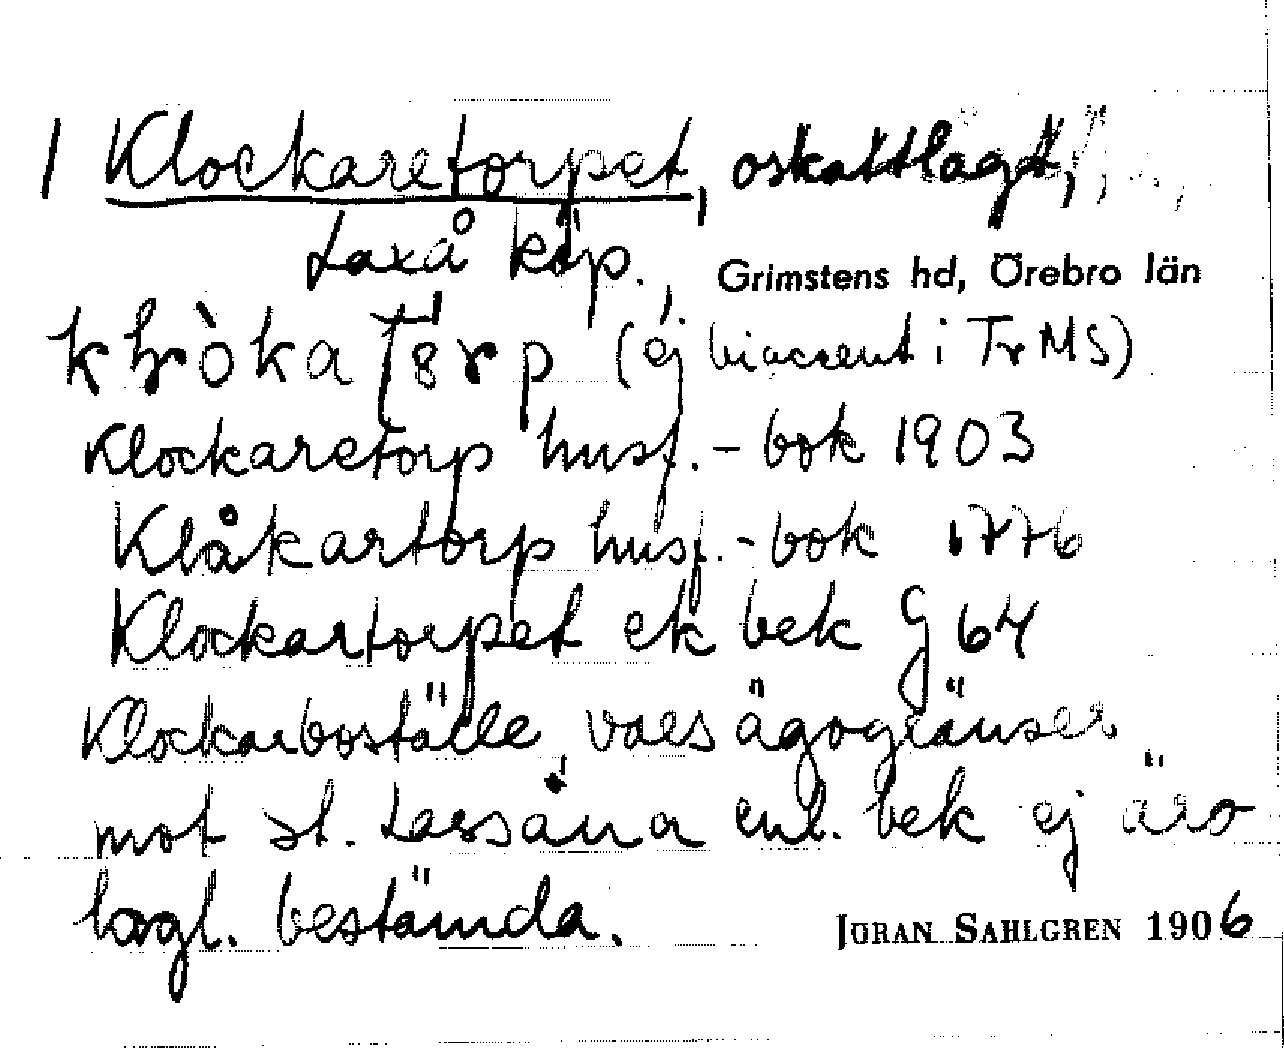 1 Klockaretorpet, oskattlagt,
Laxå köp., Grimstens hd, Örebro län
(ej biaccent i Tr MS)
Klockaretorp husf.-bok 1903
Klåkartorp husf.-bok 1776
Klockartorpet ek bek G 64
Klockarboställe, vars ägogränser
mot st. Lassåna enl. bek ej äro
lagl. bestämda.
JÖRAN SAHLGREN 1906